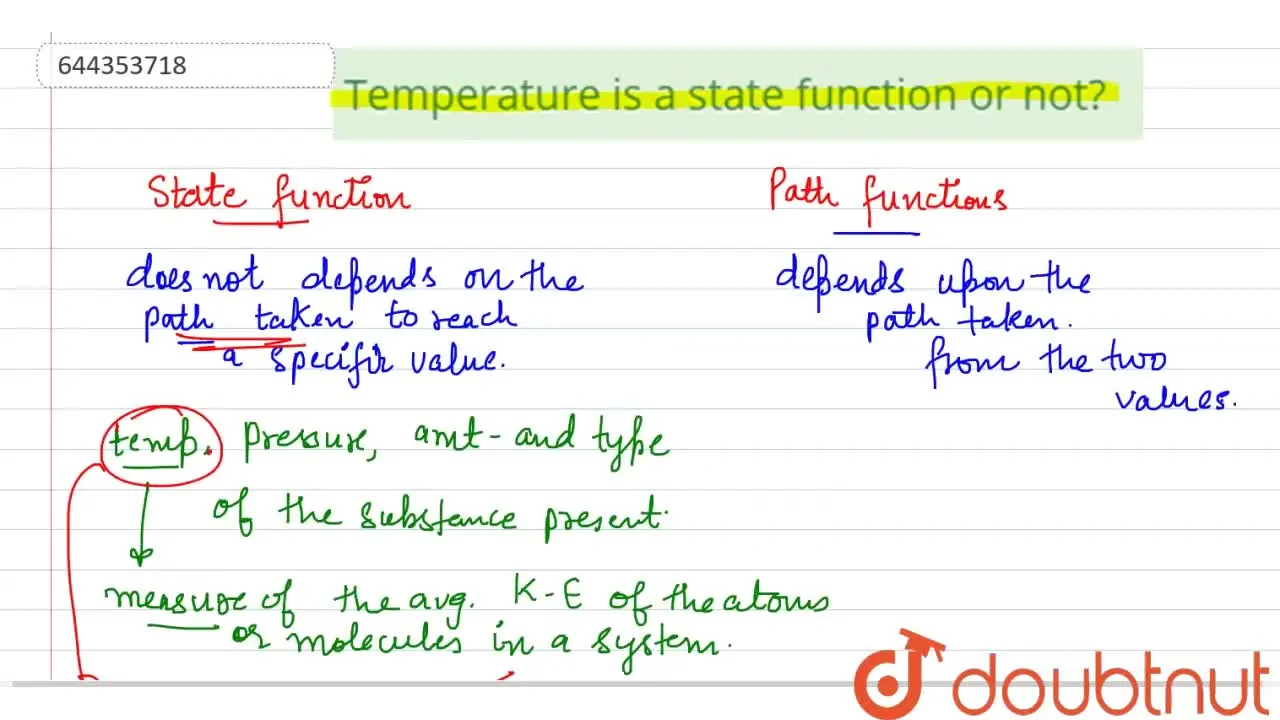 644353718
Temperature is a state function or not?
State function
Path functions
does not depends on the
path taken to reach
a specific value.
depends upon the
path taken.
from the two
values.
temp. Pressure, amt- and type
of the substance present.
measure of the avg. K-E of the atoms
or molecules in a system.
doubtnut